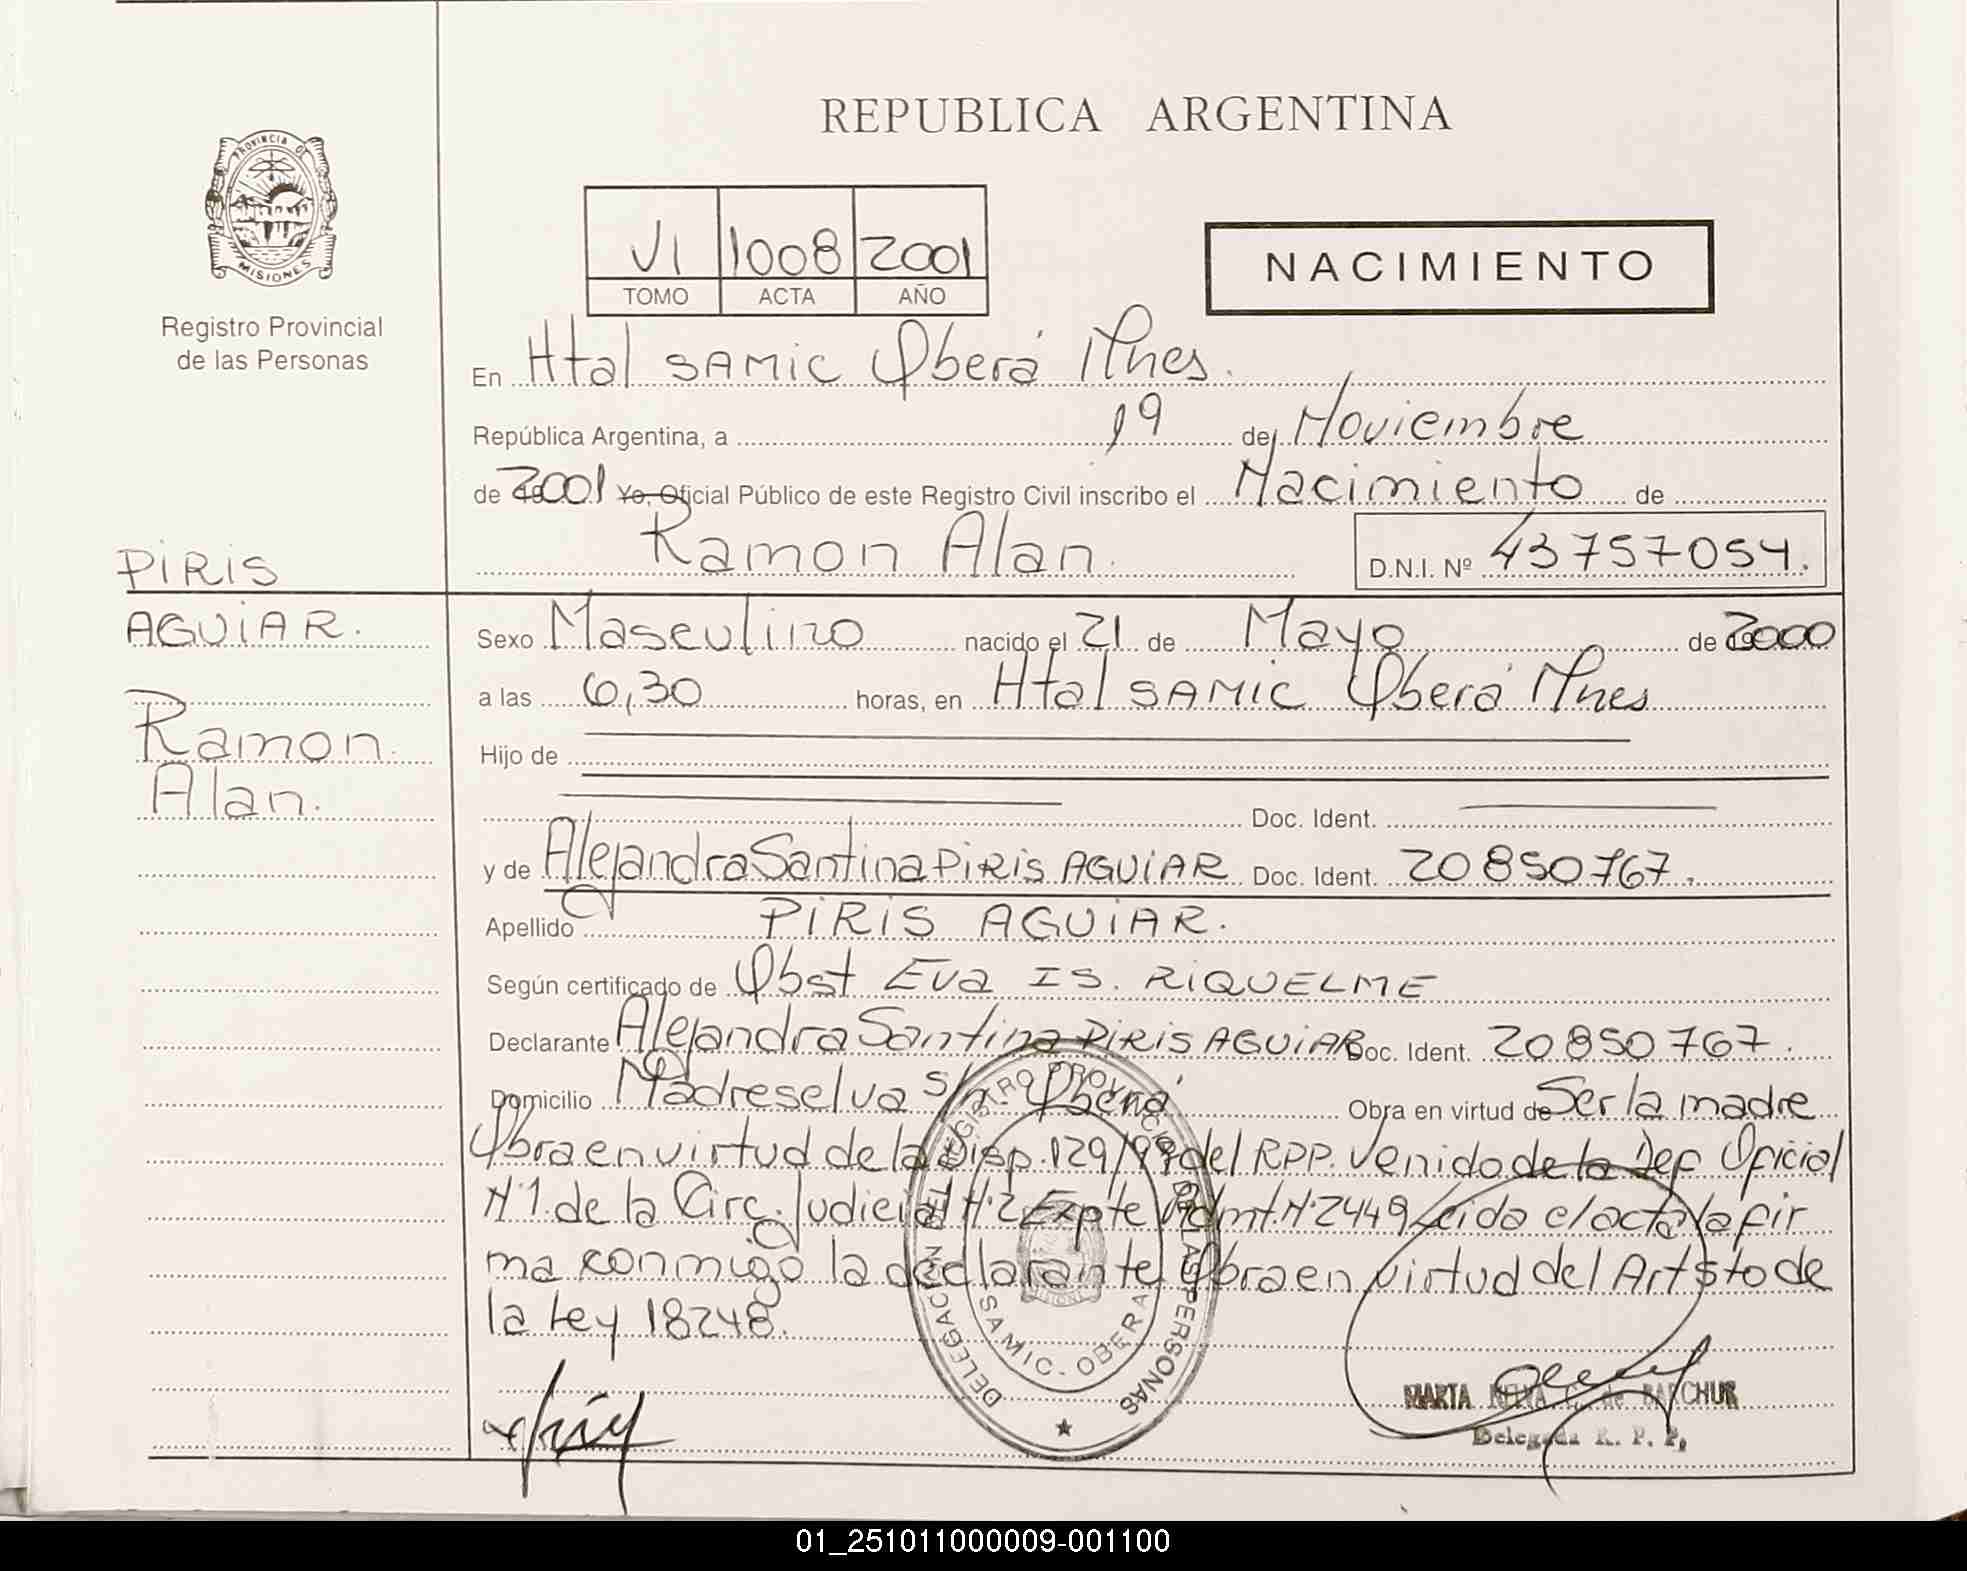 REPUBLICA ARGENTINA
PROVINCIA DE
MISIONES
Registro Provincial
de las Personas
VI 1008 2001
TOMO ACTA AÑO
NACIMIENTO
En Htal SAMIC Oberá Mnes.
República Argentina, a 19 de Noviembre
de 2001 Yo, Oficial Público de este Registro Civil inscribo el Nacimiento de
Ramon Alan. D.N.I. Nº 43757054.
PIRIS
AGUIAR.
Ramon
Alan.
Sexo Masculino nacido el 21 de Mayo de 2000
a las 6,30 horas, en Htal SAMIC Oberá Mnes
Hijo de
Doc. Ident.
y de Alejandra Santina PIRIS AGUIAR Doc. Ident. 20850767.
Apellido PIRIS AGUIAR.
Según certificado de Obst Eva IS. RIQUELME
Declarante Alejandra Santina PIRIS AGUIAR Doc. Ident. 20850767.
Domicilio Madreselva s/n. Oberá Obra en virtud de Ser la madre
Obra en virtud de la Disp. 129/99 del RPP. Venido de la Def Oficial
Nº1 de la Circ. Judicial Nº2 Expte Admt. Nº2449 Leida el acta la fir
ma conmigo la declarante Obra en virtud del Art 5to de
la Ley 18248.
DELEGACION DEL REGISTRO PROVINCIAL DE LAS PERSONAS
SAMIC - OBERA
MISIONES
MARTA C. de BATCHUR
Delegada R. P. P.
01_251011000009-001100